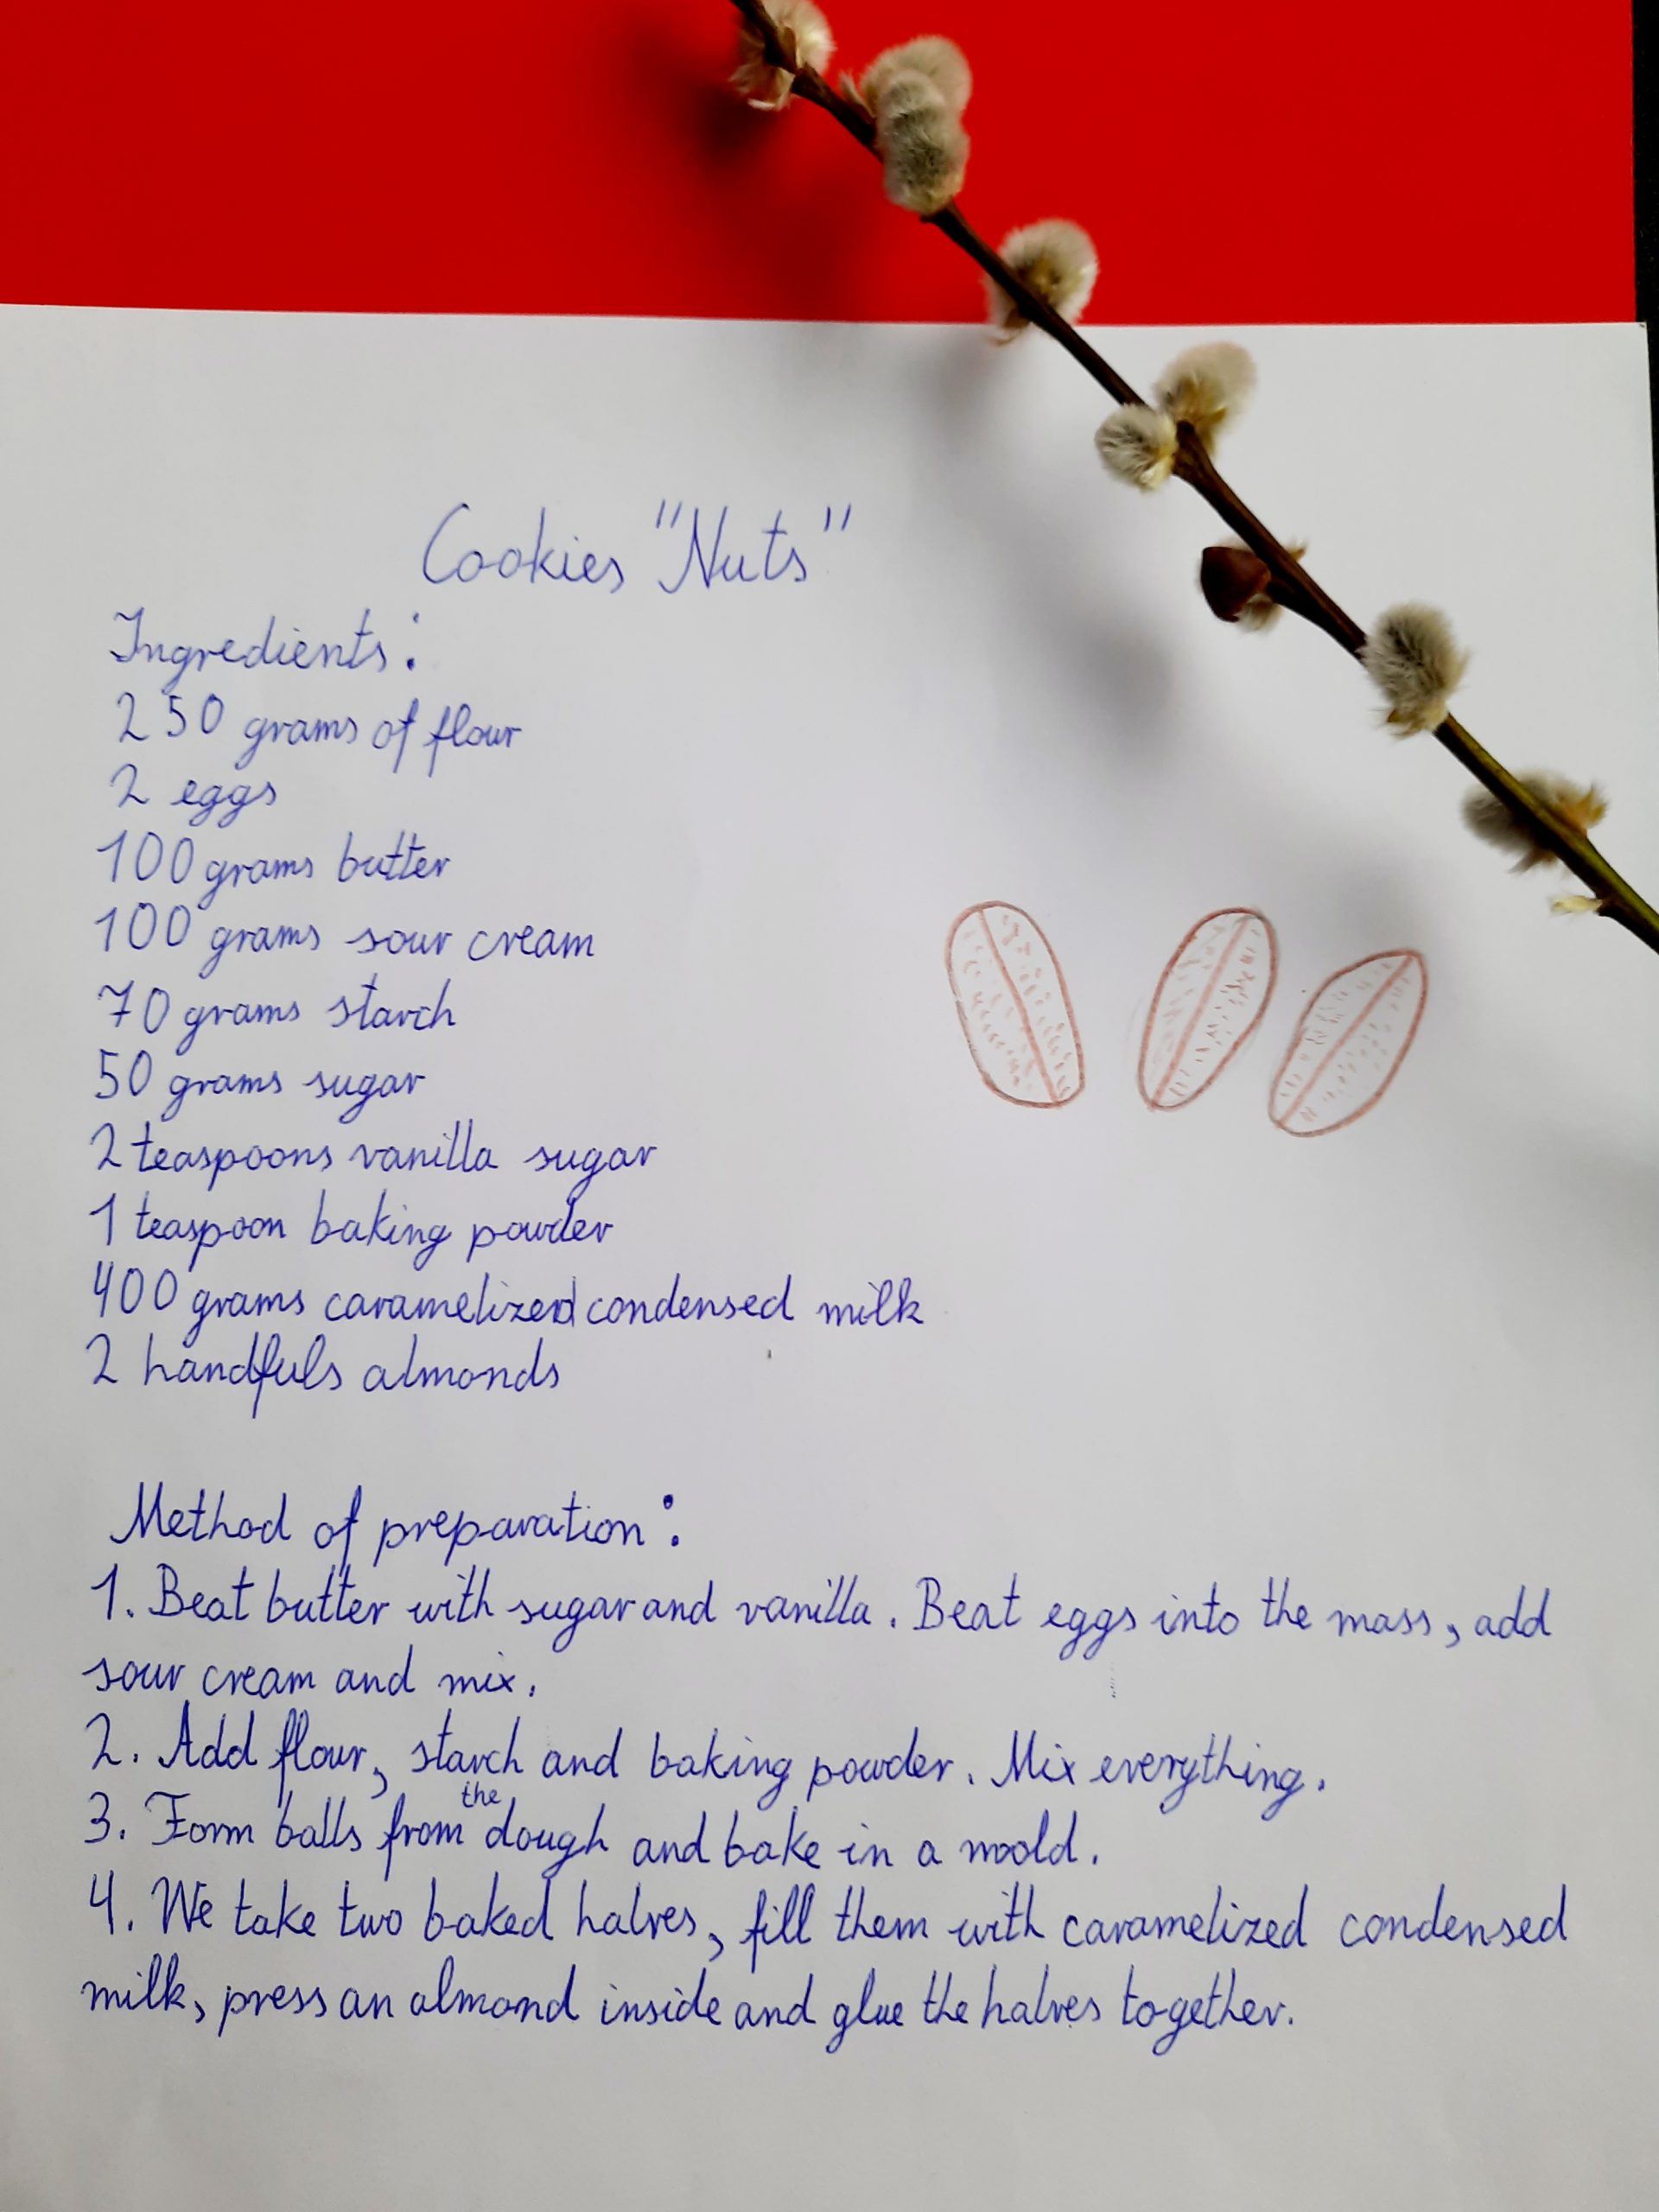 Cookies "Nuts"
Ingredients:
250 grams of flour
2 eggs
100 grams butter
100 grams sour cream
70 grams starch
50 grams sugar
2 teaspoons vanilla sugar
1 teaspoon baking powder
400 grams caramelized condensed milk
2 handfuls almonds
Method of preparation:
1. Beat butter with sugar and vanilla. Beat eggs into the mass, add
sour cream and mix.
2. Add flour, starch and baking powder. Mix everything.
3. Form balls from the dough and bake in a moold.
4. We take two baked halves, fill them with caramelized condensed
milk, press an almond inside and glue the halves together.